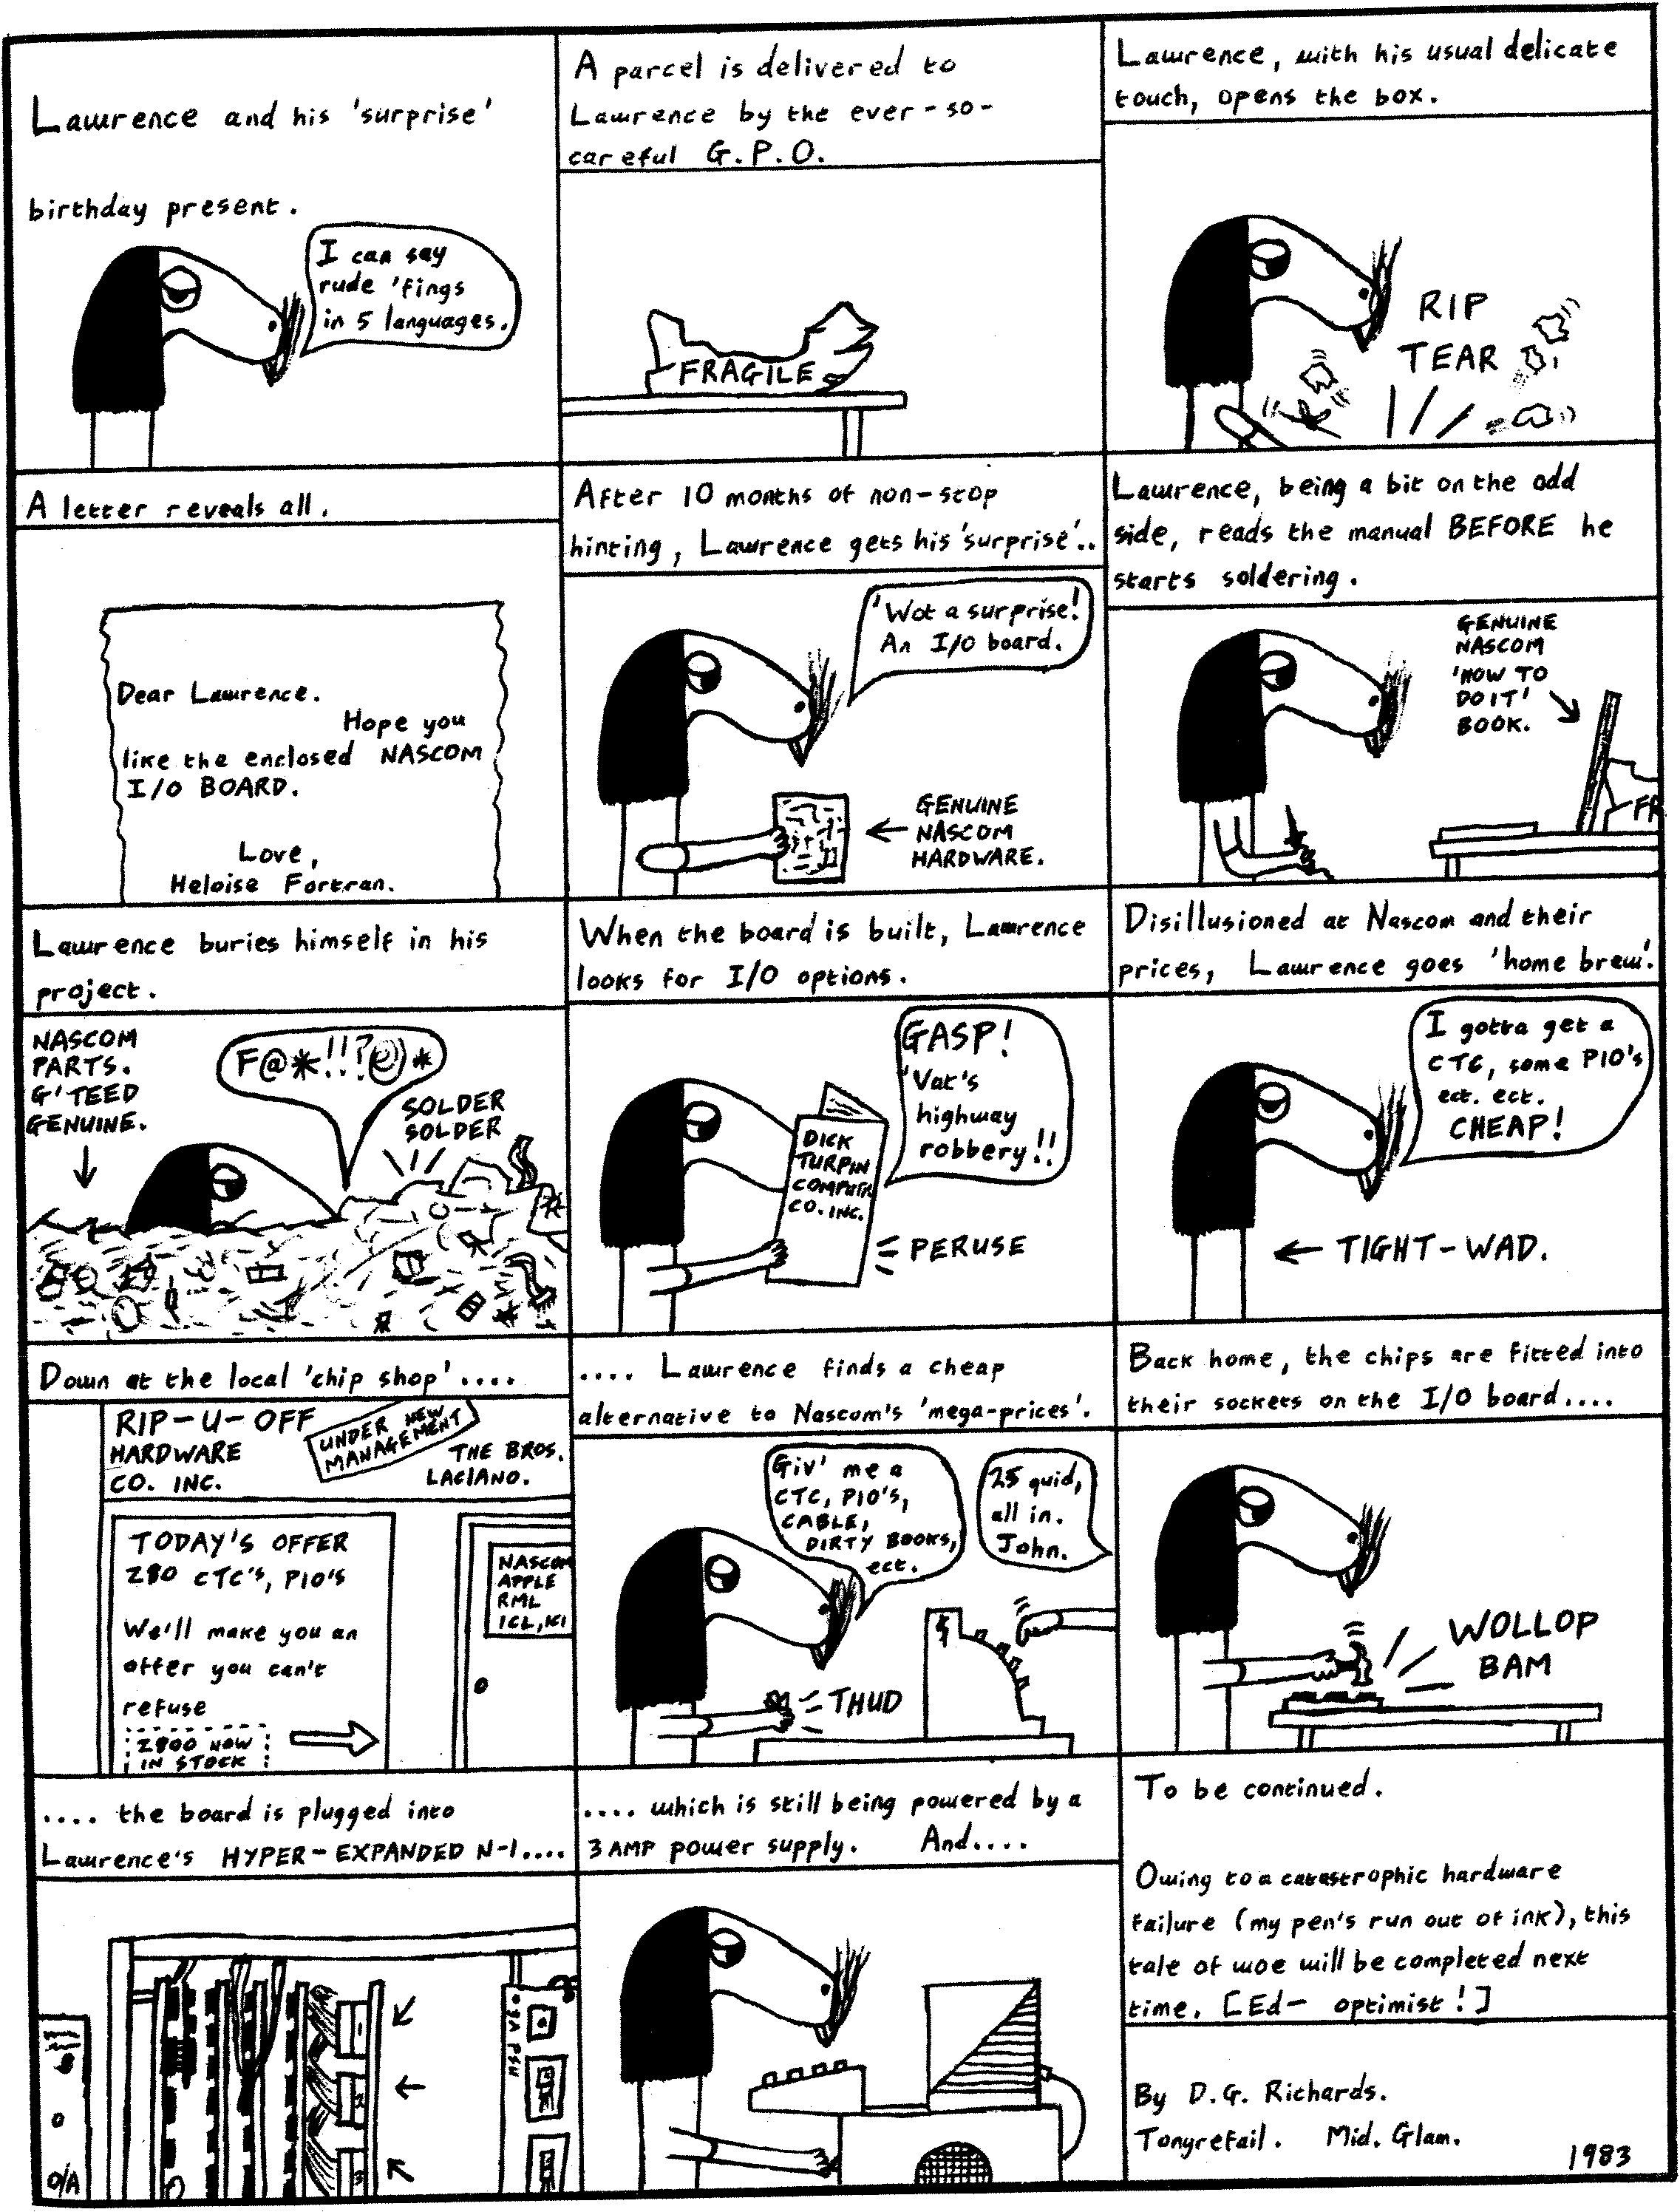 Lawrence and his 'surprise'
birthday present.
I can say
rude 'fings
in 5 languages.
A parcel is delivered to
Lawrence by the ever-so-
careful G.P.O.
FRAGILE
Lawrence, with his usual delicate
touch, opens the box.
RIP
TEAR
A letter reveals all.
Dear Lawrence.
Hope you
like the enclosed NASCOM
I/O BOARD.
Love,
Heloise Fortran.
After 10 months of non-stop
hinting, Lawrence gets his 'surprise'..
'Wot a surprise!
An I/O board.
GENUINE
NASCOM
HARDWARE.
Lawrence, being a bit on the odd
side, reads the manual BEFORE he
starts soldering.
GENUINE
NASCOM
'HOW TO
DO IT'
BOOK.
FR
Lawrence buries himself in his
project.
NASCOM
PARTS.
G'TEED
GENUINE.
F@*!!?@*
SOLDER
SOLDER
When the board is built, Lawrence
looks for I/O options.
GASP!
'Vat's
highway
robbery!!
DICK
TURPIN
COMPUTER
CO. INC.
PERUSE
Disillusioned at Nascom and their
prices, Lawrence goes 'home brew'.
I gotta get a
CTC, some PIO's
ect. ect.
CHEAP!
TIGHT-WAD.
Down at the local 'chip shop'....
RIP-U-OFF
HARDWARE
CO. INC.
UNDER NEW
MANAGEMENT
THE BROS.
LACIANO.
TODAY'S OFFER
Z80 CTC'S, PIO'S
We'll make you an
offer you can't
refuse
Z800 NOW
IN STOCK
NASCOM
APPLE
RML
ICL,
.... Lawrence finds a cheap
alternative to Nascom's 'mega-prices'.
Giv' me a
CTC, PIO'S,
CABLE,
DIRTY BOOKS,
ect.
25 quid,
all in.
John.
THUD
Back home, the chips are fitted into
their sockets on the I/O board....
WOLLOP
BAM
.... the board is plugged into
Lawrence's HYPER-EXPANDED N-1....
O/A
1
2
3
3A PSU
.... which is still being powered by a
3 AMP power supply. And....
To be continued.
Owing to a catastrophic hardware
failure (my pen's run out of ink), this
tale of woe will be completed next
time. [Ed- optimist!]
By D.G. Richards.
Tonyrefail. Mid. Glam.
1983